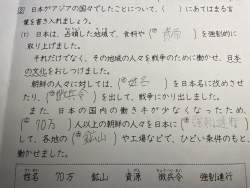 ② 日本がアジアの国々でしたことについて、（ ）にあてはまる言
葉を書き入れましょう。
(1) 日本は、占領した地域で、食料や（① 資源 ）を強制的に
取り上げました。
それだけでなく、その地域の人々を戦争のために働かせ、日本
の文化をおしつけました。
朝鮮の人々に対しては、（② 姓名 ）を日本名に改めさせ
たり、（③徴兵令）を出して、戦争にかり出しました。
また、日本の国内の働き手が少なくなったため、
（④ 70万 ）人以上の朝鮮の人々を日本に（⑤強制連行）
して、各地の（⑥ 鉱山 ）や工場などで、ひどい条件のもと、
働かせました。
姓名 70万 鉱山 資源 徴兵令 強制連行